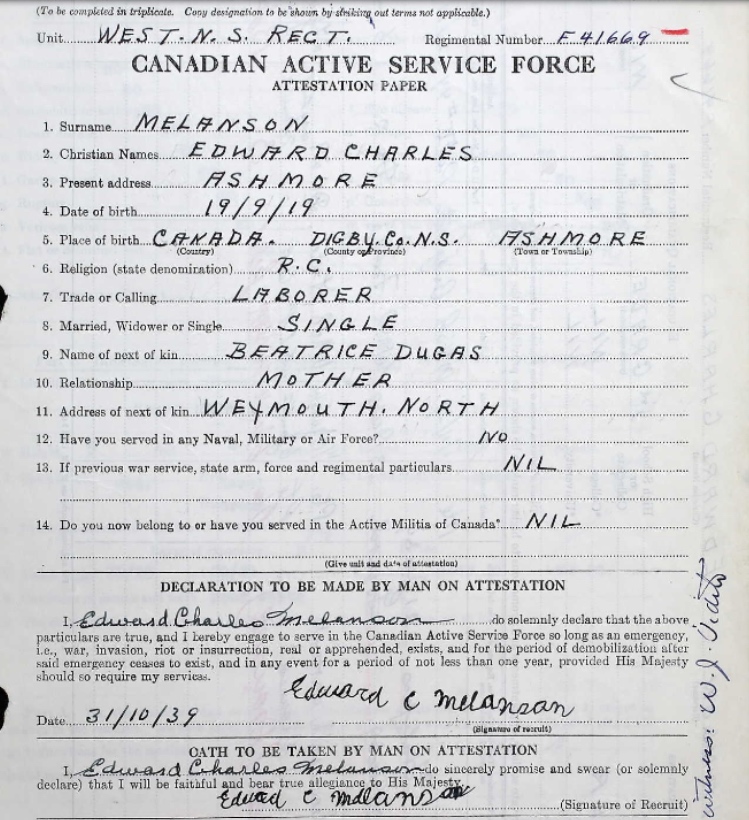 (To be completed in triplicate. Copy designation to be shown by striking out terms not applicable.)
Unit WEST. N. S. RECT. Regimental Number F 41669
CANADIAN ACTIVE SERVICE FORCE
ATTESTATION PAPER
1. Surname MELANSON
2. Christian Names EDWARD CHARLES
3. Present address ASHMORE
4. Date of birth 19/9/19
5. Place of birth CANADA. DIGBY. Co. N.S. ASHMORE
(Country) (County or Province) (Town or Township)
6. Religion (state denomination) R.C.
7. Trade or Calling LABORER
8. Married, Widower or Single SINGLE
9. Name of next of kin BEATRICE DUGAS
10. Relationship MOTHER
11. Address of next of kin WEYMOUTH. NORTH
12. Have you served in any Naval, Military or Air Force? NO
13. If previous war service, state arm, force and regimental particulars NIL
14. Do you now belong to or have you served in the Active Militia of Canada? NIL
(Give unit and date of attestation)
DECLARATION TO BE MADE BY MAN ON ATTESTATION
I, Edward Charles Melanson do solemnly declare that the above
particulars are true, and I hereby engage to serve in the Canadian Active Service Force so long as an emergency,
i.e., war, invasion, riot or insurrection, real or apprehended, exists, and for the period of demobilization after
said emergency ceases to exist, and in any event for a period of not less than one year, provided His Majesty
should so require my services.
Edward C Melanson
Date 31/10/39
(Signature of recruit)
OATH TO BE TAKEN BY MAN ON ATTESTATION
I, Edward Charles Melanson do sincerely promise and swear (or solemnly
declare) that I will be faithful and bear true allegiance to His Majesty.
Edward C Melanson (Signature of Recruit)
Witness: W. J.